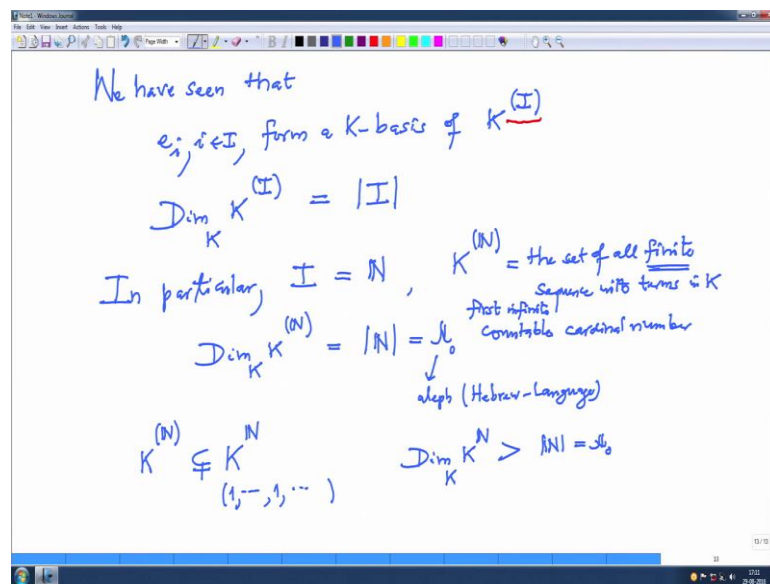 Note1 - Windows Journal
File Edit View Insert Actions Tools Help
Page Width
We have seen that
e_i, i∈I, form a K-basis of K^(I)
Dim_K K^(I) = |I|
In particular, I = ℕ, K^(ℕ) = the set of all finite
sequence with terms in K
first infinite
countable cardinal number
Dim_K K^(ℕ) = |ℕ| = ℵ₀
↓
aleph (Hebrew-Language)
K^(ℕ) ⊊ K^ℕ Dim_K K^ℕ > |ℕ| = ℵ₀
(1,--,1,...)
13/13
18
17:11